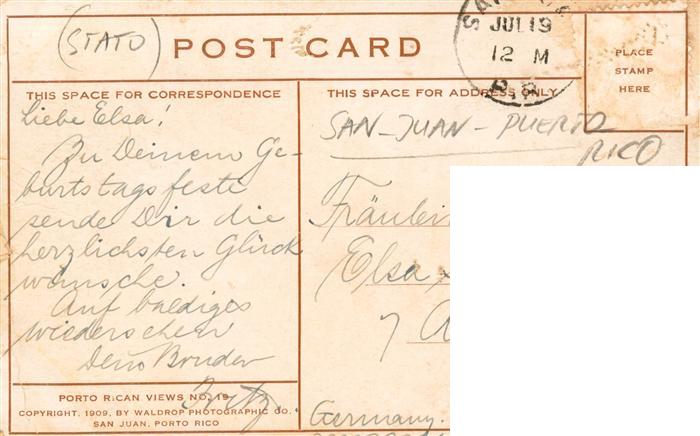 (STATO)
POST CARD
SAN
JUL 19
12 M
P.R.
PLACE
STAMP
HERE
THIS SPACE FOR CORRESPONDENCE
Liebe Elsa!
Zu Deinem Ge-
burtstagsfeste
sende Dir die
herzlichsten Glück
wünsche.
Auf baldiges
Wiedersehen
Dein Bruder
Fritz.
PORTO RICAN VIEWS NO. 19
COPYRIGHT, 1909, BY WALDROP PHOTOGRAPHIC CO.
SAN JUAN, PORTO RICO
THIS SPACE FOR ADDRESS ONLY
SAN-JUAN-PUERTO
RICO
Fräulein
Elsa
7
Germany.